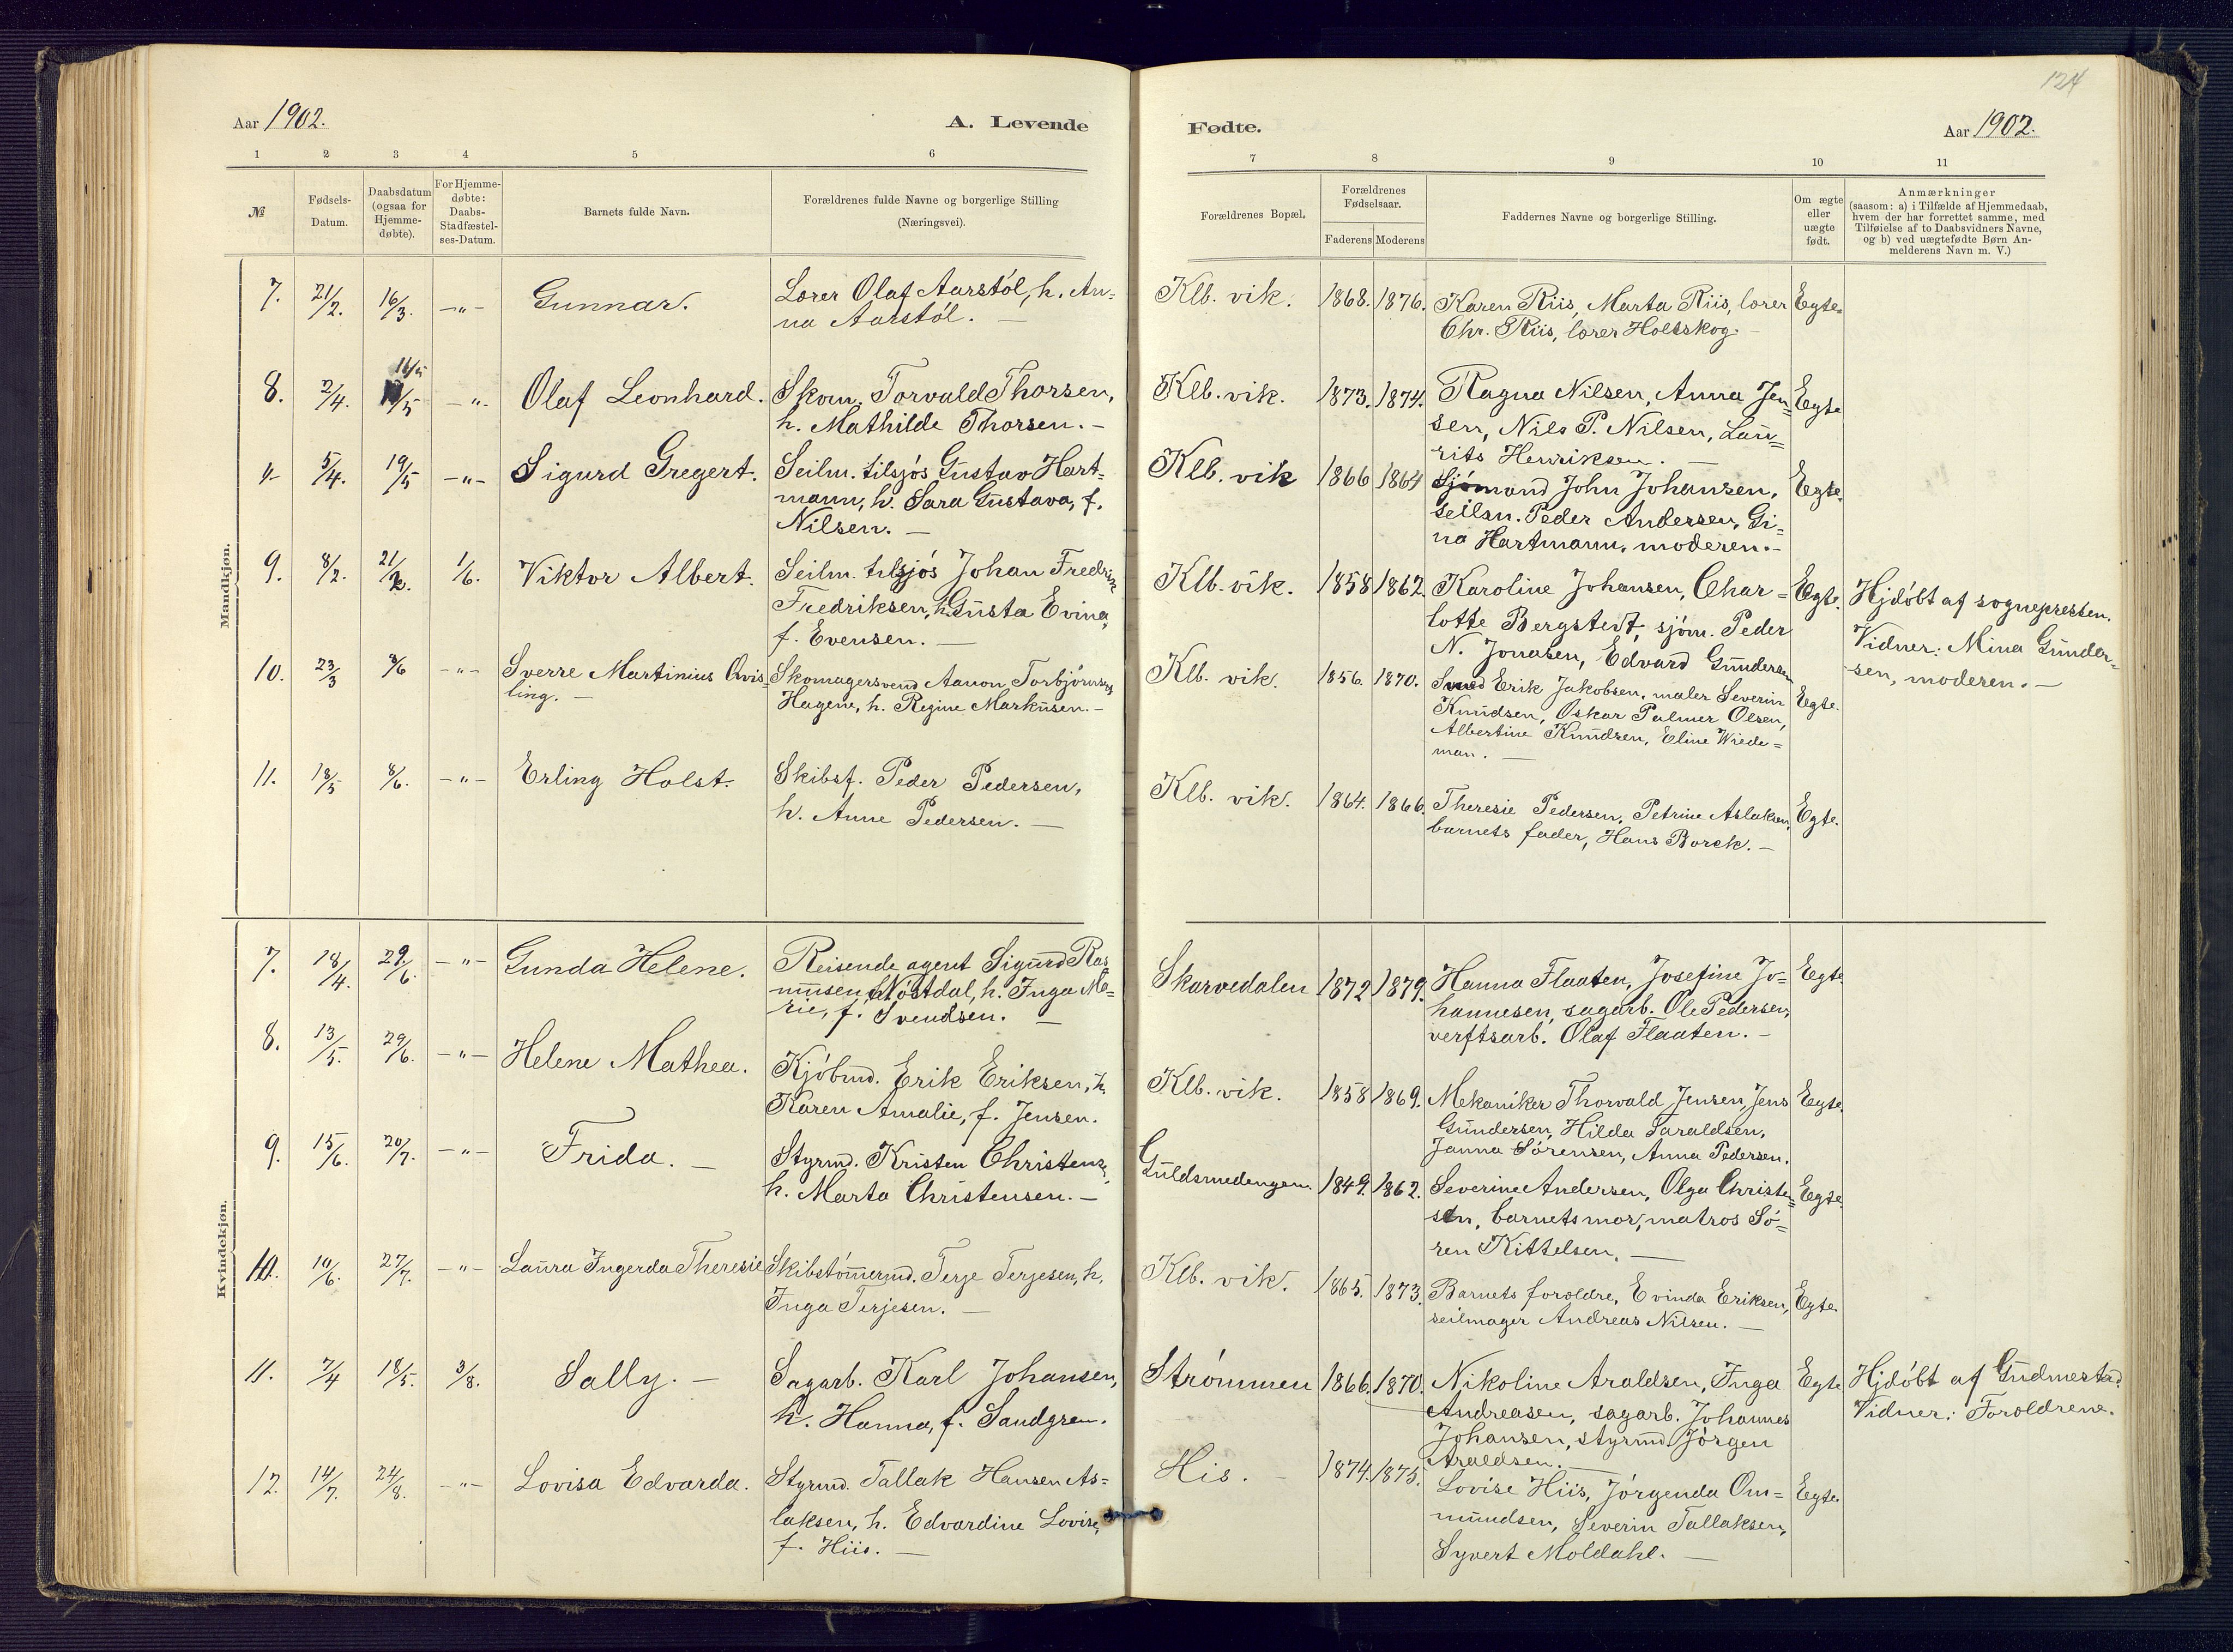 124
Aar 1902. A. Levende
Fødte. Aar 1902.
1 2 3 4 5 6
7 8 9 10 11
№
Fødsels-
Datum.
Daabsdatum
(ogsaa for
Hjemme-
døbte).
For Hjemme-
døbte:
Daabs-
Stadfæstel-
ses-Datum.
Barnets fulde Navn.
Forældrenes fulde Navne og borgerlige Stilling
(Næringsvei).
Forældrenes Bopæl.
Forældrenes
Fødselsaar.
Faderens Moderens
Faddernes Navne og borgerlige Stilling.
Om ægte
eller
uægte
født.
Anmærkninger
(saasom: a) i Tilfælde af Hjemmedaab,
hvem der har forrettet samme, med
Tilføielse af to Daabsvidners Navne,
og b) ved uægtefødte Børn An-
melderens Navn m. V.)
Mandkjøn.
7. 21/2. 16/3. -"- Gunnar. Lærer Olaf Aarstól, h. An=
na Aarstól. —
Klb. vik. 1868. 1876. Karen Riis, Marta Riis, lærer Egte.
Chr. Riis, lærer Holtskog. —
8. 2/4. -"- Olaf Leonhard. Skom. Torvald Thorsen,
h. Mathilde Thorsen. —
Klb. vik. 1873. 1874. Ragna Nilsen, Anna Jen= Egte
sen, Nils P. Nilsen, Lau=
rits Henriksen. —
5/4. 19/5 -"- Sigurd Gregert. Seilm. tilsjós Gustav Hart=
mann, h. Sara Gustava, f.
Nilsen. —
Klb. vik 1866 1864 Sjómand John Johansen, Egte.
seilsm. Peder Andersen, Gi=
na Hartmann, moderen. —
9. 8/2. 21/2. 1/6. Viktor Albert. Seilm. tilsjós Johan Fredrik
Fredriksen, h. Gusta Evina,
f. Evensen. —
Klb. vik. 1858 1862. Karoline Johansen, Char= Egte. Hjdóbt af sognepresten.
lotte Bergstedt, sjóm. Peder
N. Jonasen, Edvard Gundersen
Vidner: Mina Gunder=
sen, moderen. —
10. 23/3 8/6 -"- Sverre Martinius Qvis=
ling. —
Skomagersvend Aanon Torbjórnsen
Hagene, h. Regine Markusen. —
Klb. vik. 1856. 1870. Smed Erik Jakobsen, maler Severin Egte.
Knudsen, Oskar Palmer Olsen,
Albertine Knudsen, Eline Wiede=
man. —
11. 18/5 8/6. -"- Erling Holst. Skibsf. Peder Pedersen,
h. Anne Pedersen. —
Klb. vik. 1864. 1866. Theresie Pedersen, Petrine Aslaksen, Egte.
barnets fader, Hans Borck. —
Kvindekjøn.
7. 18/4. 29/6. -"- Gunda Helene. Reisende agent Sigurd Ras
mussen Nóstdal, h. Inga Ma=
rie, f. Svendsen. —
Skarvedalen 1872 1879. Hanna Flaaten, Josefine Jo= Egte.
hannesen, sagarb. Ole Pedersen,
verftsarb. Olaf Flaaten. —
8. 13/5. 29/6. -"- Helene Mathea. Kjóbmd. Erik Eriksen, h.
Karen Amalie, f. Jensen.
Klb. vik. 1858 1869. Mekaniker Thorvald Jensen, Jens Egte.
Gundersen, Hilda Taraldsen,
Janna Sórensen, Anna Pedersen.
9. 15/6. 20/7. -"- Frida. — Styrmd. Kristen Christens.,
h. Marta Christensen. —
Guldsmedengen. 1849. 1862. Severine Andersen, Olga Christen= Egte.
sen, barnets mor, matros Só=
ren Kittelsen. —
10. 10/6. 27/7. -"- Laura Ingerda Theresie Skibstómermd. Terje Terjesen, h.
Inga Terjesen. —
Klb. vik. 1865. 1873. Barnets foroldre, Evinda Eriksen, Egte
seilmager Andreas Nilsen. —
11. 7/4 18/5. 3/8. Sally. — Sagarb. Karl Johansen,
h. Hanna, f. Sandgren.
Strómmen 1866. 1870. Nikoline Araldsen, Inga Egte Hjdóbt af Gudmestad.
Andreasen, sagarb. Johannes Vidner: Foroldrene.
Johansen, styrmd. Jórgen
Araldsen. —
12. 14/7. 24/8. -"- Lovisa Edvarda. Styrmd. Tallak Hansen As=
laksen, h. Edvardine Lovise,
f. Hiis. —
His. — 1874. 1875. Lovise Hiis, Jórgenda Om= Egte.
mundsen, Severin Tallaksen,
Syvert Moldahl. —